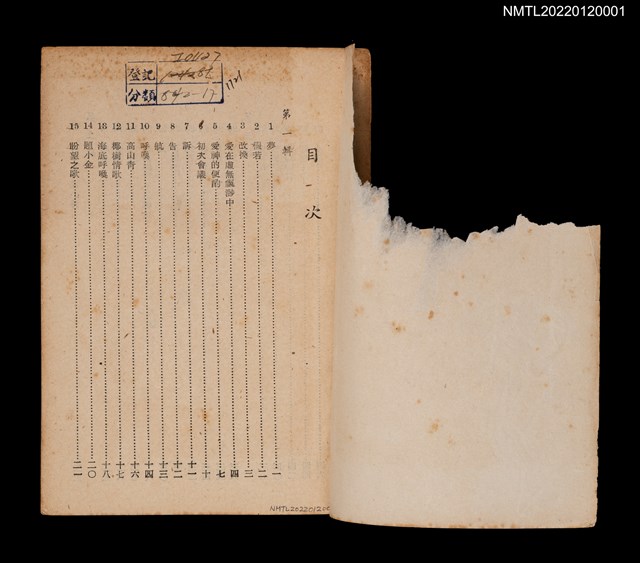 NMTL20220120001
登記
分類 542-17
1721
目次
第一輯
1 夢 一
2 二
3 三
4 愛在虛無飄渺中 四
5 愛神的使的 七
6 初次會議 十
7 訴 十一
8 告 十二
9 十三
10 呼喚 十四
11 高山青 十六
12 椰樹情歌 十七
13 海底呼喚 十八
14 小金 二〇
15 盼望之歌 二一